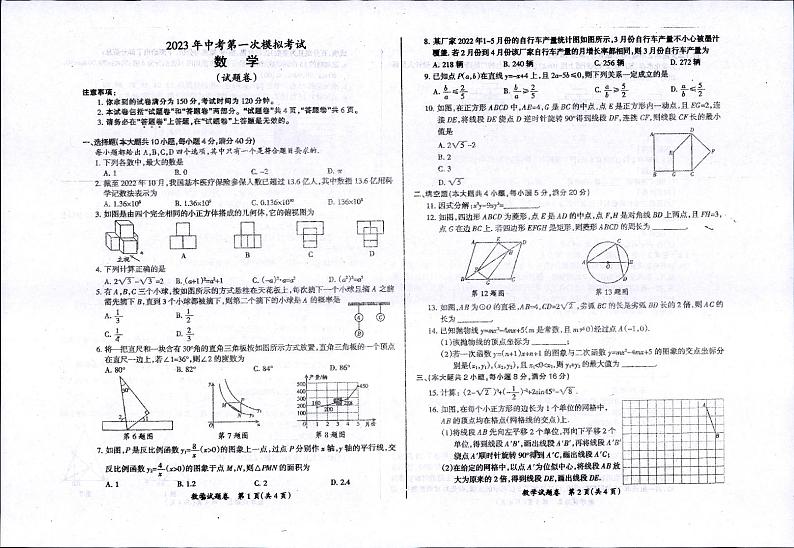 2023年中考第一次模拟考试
数 学
(试题卷)
注意事项:
1. 你拿到的试卷满分为150分,考试时间为120分钟。
2. 本试卷包括“试题卷”和“答题卷”两部分。“试题卷”共4页,“答题卷”共6页。
3. 请务必在“答题卷”上答题,在“试题卷”上答题是无效的。
一、选择题(本大题共10小题,每小题4分,满分40分)
每小题都给出A,B,C,D四个选项,其中只有一个是符合题目要求的.
1. 下列各数中,最大的数是
A. 1 B. 0 C. -2 D. π
2. 截至2022年10月,我国基本医疗保险参保人数已超过13.6亿人,其中数据13.6亿用科
学记数法表示为
A. 1.36×10⁸ B. 1.36×10⁹ C. 0.136×10¹⁰ D. 136×10⁸
3. 如图是由四个完全相同的小正方体搭成的几何体,它的俯视图为
主视
A B C D
4. 下列计算正确的是
A. 2√3-√3=2 B. (a+1)²=a²+1 C. (-a)²÷a=a² D. (a²)³=a⁵
5. 有A,B,C三个小球,按如图所示的方式悬挂在天花板上,每次摘下一个小球且摘A之前
需先摘下B,直到3个小球都被摘下,则第二个摘下的小球是A的概率是
A. 1/3 B. 1/2
C. 1/4 D. 2/3
A B C
6. 将一把直尺和一块含有30°角的直角三角板按如图所示方式放置,直角三角板的一个顶点
在直尺一边上,若∠1=36°,则∠2的度数为
A. 80° B. 82° C. 84° D. 86°
第6题图 第7题图 第8题图
产量/辆
500
400
300
200
100
0 1 2 3 4 5 月份
450
7. 如图,P是反比例函数y₁=8/x(x>0)的图象上一点,过点P分别作x轴,y轴的平行线,交
反比例函数y₂=4/x(x>0)的图象于点M,N,则△PMN的面积为
A. 1 B. 1.2 C. 2 D. 2.4
数学试题卷 第1页(共4页)
8. 某厂家2022年1~5月份的自行车产量统计图如图所示,3月份自行车产量不小心被墨汁
覆盖.若2月份到4月份该厂家自行车产量的月增长率都相同,则3月份自行车产量为
A. 218辆 B. 240辆 C. 256辆 D. 272辆
9. 已知点P(a,b)在直线y=-x+4上,且2a-5b≤0,则下列关系一定成立的是
A. b/a≤2/5 B. b/a≥2/5 C. a/b≥5/2 D. a/b≤5/2
10. 如图,在正方形ABCD中,AB=4,G是BC的中点,点E是正方形内一动点,且EG=2,连
接DE,将线段DE绕点D逆时针旋转90°得到线段DF,连接CF,则线段CF长的最小
值是
A. 2√5-2
B. 2
C. 3
D. √5
A D E F B G C
二、填空题(本大题共4小题,每小题5分,满分20分)
11. 因式分解:x³y-9xy³=________.
12. 如图,四边形ABCD为菱形,点E是AD的中点,点F,H是对角线BD上两点,且FH=3,
点G在边BC上.若四边形EFGH是矩形,则菱形ABCD的周长为________.
第12题图 第13题图
13. 如图,AB为⊙O的直径,AB=4,CD=2√2,劣弧BC的长是劣弧BD长的2倍,则AC的
长为________.
14. 已知抛物线y=mx²-4mx+5(m是常数,且m≠0)经过点A(-1,0).
(1)该抛物线的顶点坐标为________;
(2)若一次函数y=(n+1)x+n+1的图象与二次函数y=mx²-4mx+5的图象的交点坐标分
别是(x₁,y₁),(x₂,y₂),且x₁<0<x₂,则y₁+y₂的最大值为________.
三、(本大题共2小题,每小题8分,满分16分)
15. 计算:(2-√2)⁰+(-1/2)⁻²+2sin45°-√8.
16. 如图,在每个小正方形的边长为1个单位的网格中,
AB的顶点均在格点(网格线的交点)上.
(1)将线段AB先向左平移2个单位,再向下平移2个
单位,得到线段A′B′,画出线段A′B′,再将线段A′B′
绕点A′顺时针旋转90°得到A′C,画出线段A′C;
(2)在给定的网格中,以点A′为位似中心,将线段AB放
大为原来的2倍,得到线段DE,画出线段DE.
A
B
数学试题卷 第2页(共4页)